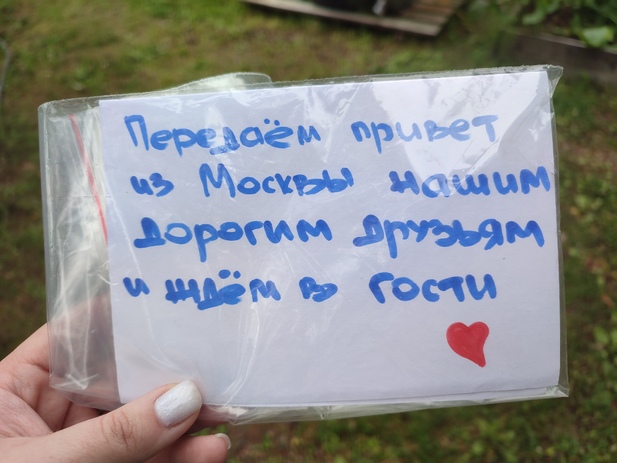 Передаём привет
из Москвы нашим
дорогим друзьям
и ждём в гости